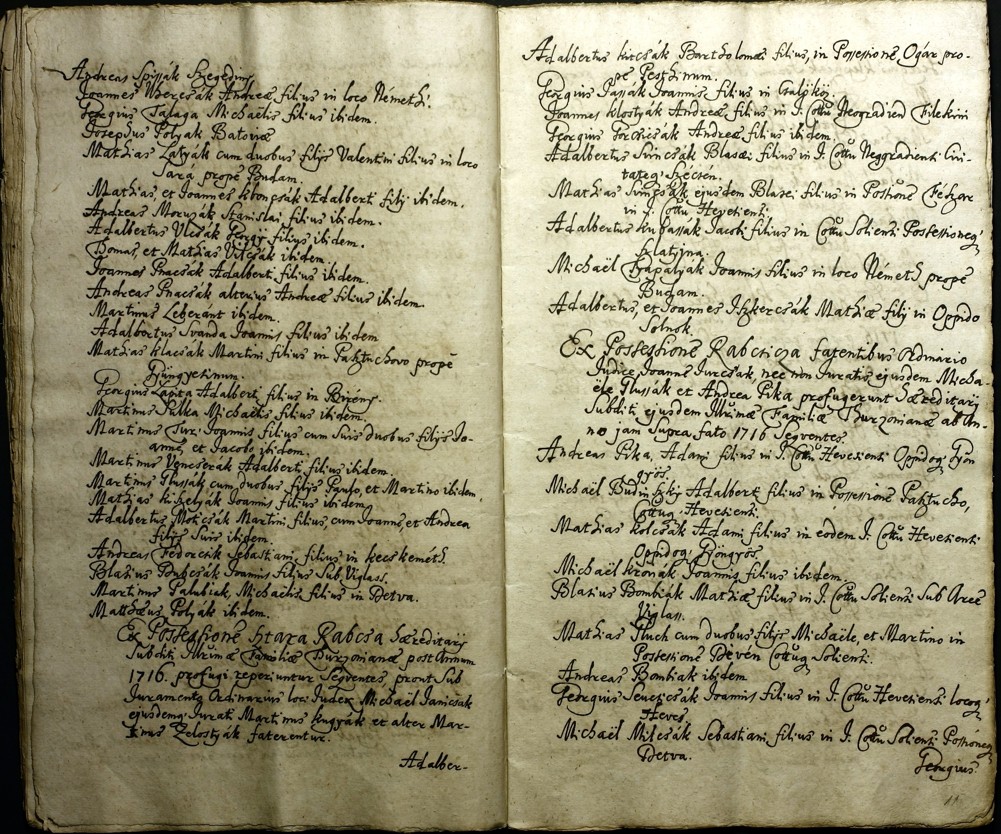 Andreas Spissák Szegediny
Joannes Wercsák Andreæ filius in loco Németh.
Georgius Talaga Michaëlis filius ibidem.
Josephus Polyak Batoviæ
Mathias Latyák cum duobus filijs Valentini filius in loco
Sara propè Budam.
Mathias, et Joannes klongsák Adalberti filij ibidem.
Andreas Moruzák Stanislai filius ibidem.
Adalbertus Vlcsák filius ibidem.
Thomas, et Mathias Vitcsák ibidem.
Joannes Pnacsák Adalberti filius ibidem.
Andreas Pnacsák alterius Andreæ filius ibidem.
Martinus Leberant ibidem.
Adalbertus Svanda Joannis filius ibidem
Mathias klacsák Martini filius in Pasztuchovo propè
Gyüngyesinum.
Georgius Lapita Adalberti filius in Berény.
Martinus Silka Michaëlis filius ibidem.
Martinus Joannis filius cum suis duobus filijs Jo-
anne, et Jacobo ibidem.
Martinus Venecserák Adalberti filius ibidem.
Martinus Glussák cum duobus filijs Paulo, et Martino ibidem.
Mathias kihelyák Joannis filius ibidem.
Adalbertus Moticsák Martini filius, cum Joanne, et Andrea
filijs suis ibidem.
Andreas Fedorcsik Sebastiani filius in kecskeméth.
Blasius Joannis filius sub Viglass.
Martinus Palubiak, Michaëlis filius in Detva.
Matthæus Polyák ibidem.
Ex Possessione Stara Rabcsa Hæreditarij
Subditi Illrimæ Familiæ Thurzonianæ post Annum
1716. profugi reperiuntur Seqventes prout sub
Juramento Ordinarius loci Judex Michaël Janicsak
ejusdemq Jurati Martinus kugyák et alter Mar-
tinus Zelostyák faterentur.
Adalber-
Adalbertus kircsák Bartholomæi filius, in Possessione Ogar pro-
pè Pesthinum.
Georgius Sassák Joannis filius in Csalýköz.
Joannes klostyák Andreæ filius in I. Cottu Neogradien Filekini
Georgius Andreæ filius ibidem
Adalbertus Svincsák Blasei filius in I. Cottu Neggradienti Civi-
tateq Szecsen.
Mathias Svincsák ejusdem Blasei filius in Possione
in I. Cottu Hevesienti.
Adalbertus kubassák Jacobi filius in Cottu Solienti Possessioneq
Szlatyina.
Michaël Czapalják Joannis filius in loco Németh propè
Budam.
Adalbertus, et Joannes Iszkercsák Mathiæ filij in Oppido
Solnok.
Ex Possessione Rabcsicza fatentibus Ordinario
Judice Joanne Jurcsak, nec non Juratis ejusdem Micha-
ële Glusják et Andrea Pika profugerunt Hæreditarij
Subditi ejusdem Illrimæ Familiæ Thurzonianæ ab An-
no jam supra fato 1716 Seqventes.
Andreas Pika, Adami filius in I. Cottu Hevesienti Oppidoq Gyön
gyös.
Michaël Budinszkij Adalberti filius in Possessione Pasztucho,
Cottuq Hevesienti.
Mathias kolcsák Adami filius in eodem I. Cottu Hevesienti
Oppidoq Gyöngyös.
Michaël kronák Joannis filius ibidem
Blasius Bombiak Mathiæ filius in I. Cottu Solienti sub Arce
Viglass.
Mathias Gluch cum duobus filijs Michaële, et Martino in
Possessione Dèvèn Cottuq Solienti.
Andreas Bombiak ibidem
Georgius Joannis filius in I. Cottu Hevesienti locoq
Heves.
Michaël Milcsák Sebastiani filius in I. Cottu Solienti Possioneq
Detva.
Georgius